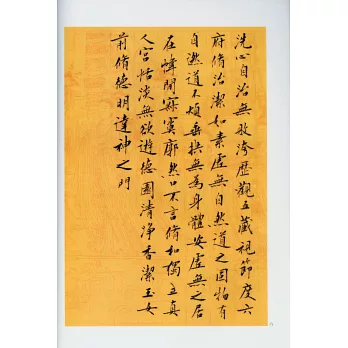 洗心自治無敗洿歷觀五藏視節度六
府脩治潔如素虛無自然道之固物有
自然道不煩垂拱無為身體安虛無之居
在幃間寂寞廓然口不言脩和獨立真
人宮恬淡無欲遊德園清淨香潔玉女
前脩德明達神之門